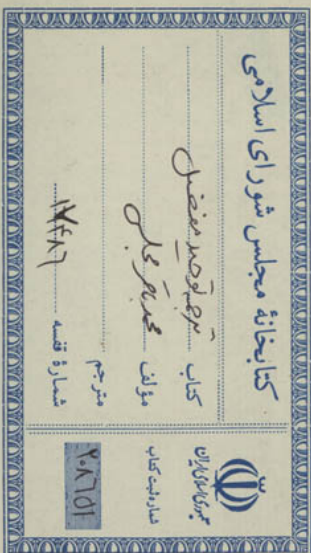 کتابخانهٔ مجلس شورای اسلامی
کتاب ترجمه توحید مفضل
مؤلف محمد باقر مجلسی
مترجم
شمارهٔ قفسه ۱۷۴۸۶
جمهوری اسلامی ایران
شماره ثبت کتاب
۲۰۸۶۵۱